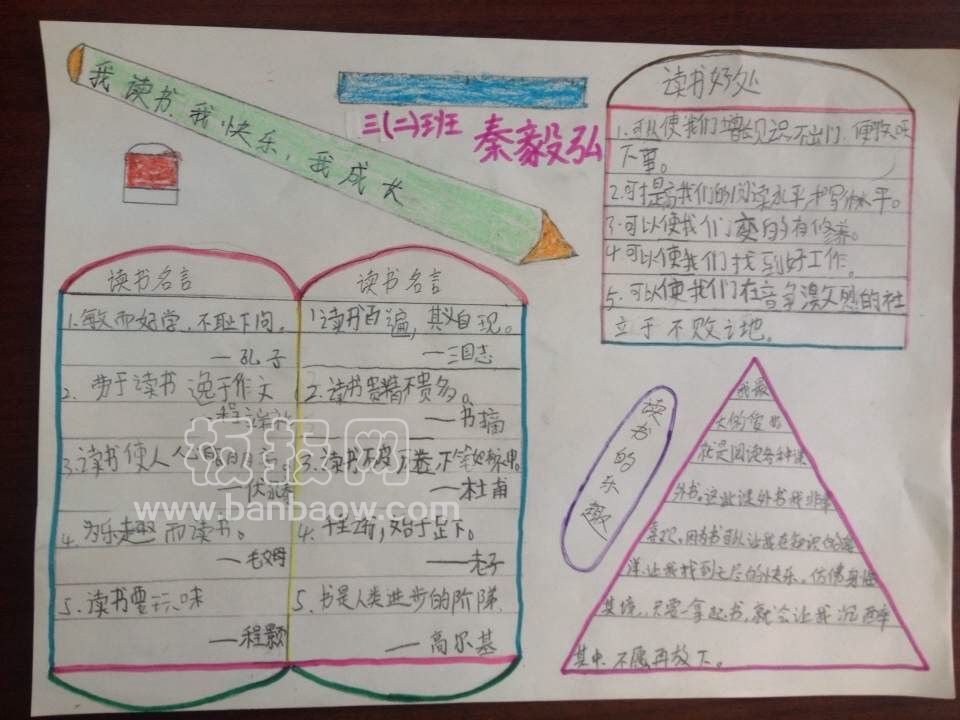 我读书,我快乐,我成长
三(二)班 秦毅弘
读书好处
1.可以使我们增长见识,不出门,便
下事。
2.可提高我们的阅读水平
3.可以使我们变的有修养。
4.可以使我们找到好工作。
5.可以使我们在竞争激烈的社
立于不败之地。
读书名言
1.敏而好学,不耻下问。
—孔子
2.勞于读书 逸于作文
3.读书使人
4.为乐趣而读书。
—毛姆
5.读书要玩味
——程颢
读书名言
1读书百遍,其义自现。
—三国志
2.读书贵精不贵多。
——书摘
3.读书破万卷,下笔如有神。
—杜甫
4.千里之行,始于足下。
—老子
5.书是人类进步的阶梯
——高尔基
读书的乐趣
我最
大的爱好
就是阅读各种课
外书,这些课外书我非常
喜欢,因为书可以让我在知识的海
洋,让我找到无尽的快乐,仿佛身临
其境,只要拿起书,就会让我沉醉
其中,不愿再放下。
板报网
www.banbaow.com